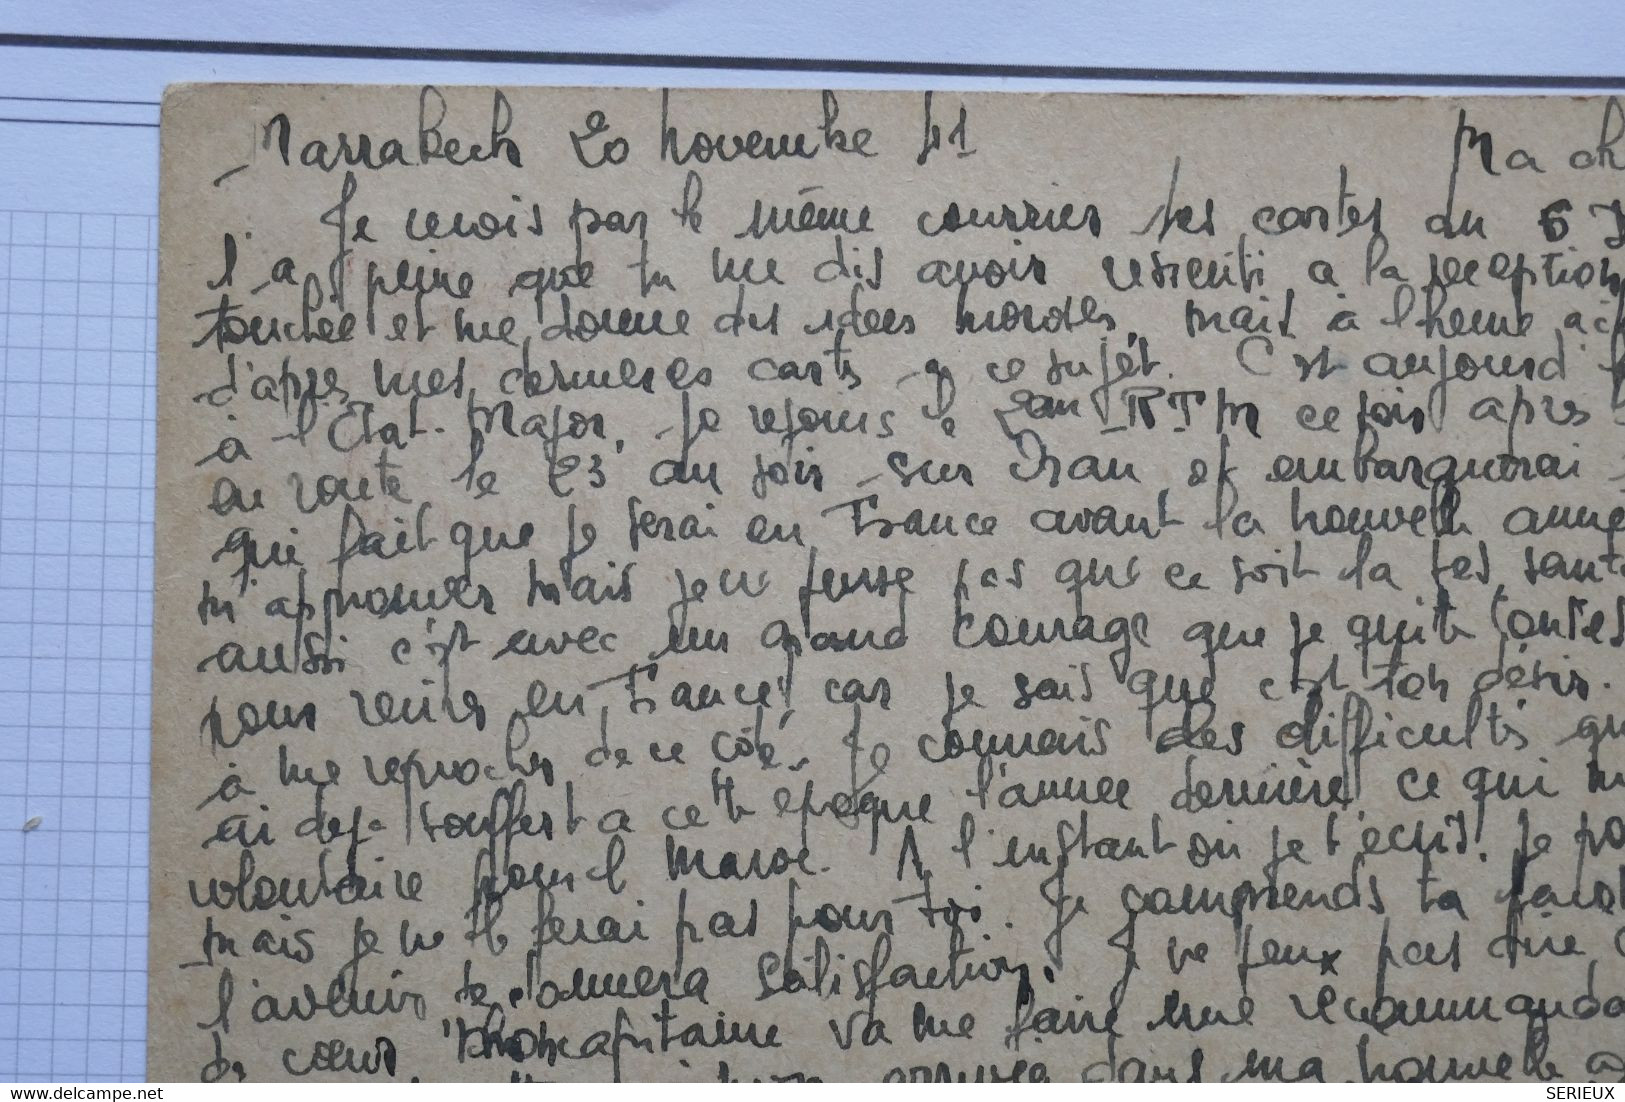 Marrakech 20 novembre 41 Ma ch
Je reçois par le même courrier tes cartes du 5
l'a peine que tu me dis avoir resenti a la reception
touchée et me donne des idées mordes, mais à l'heure
d'apres mes dernieres cartes à ce sujét. C'est aujourd'h
à l'État-Major, je rejoins le 2em RTM ce soir apres
en route le 23 au soir sur Oran et embarquerai
qui fait que je serai en France avant la nouvelle anné
m'approuver mais je ne pense pas que ce soit la
aussi c'est avec un grand courage que je quitte
pour venir en France, car je sais que c'est ton désir.
à me reprocher de ce côté. Je connais des difficultés qu
ai deja souffert a cette epoque l'année dernière ce qui m
volontaire pour le Maroc. A l'instant où je t'ecris, je po
mais je ne le ferai pas pour toi. Je comprends ta
l'avenir te donnera satisfaction. Je ne peux pas dire
de cœur. Mon capitaine va me faire une recommanda
arrivée dans ma nouvelle
delcampe.net
SERIEUX